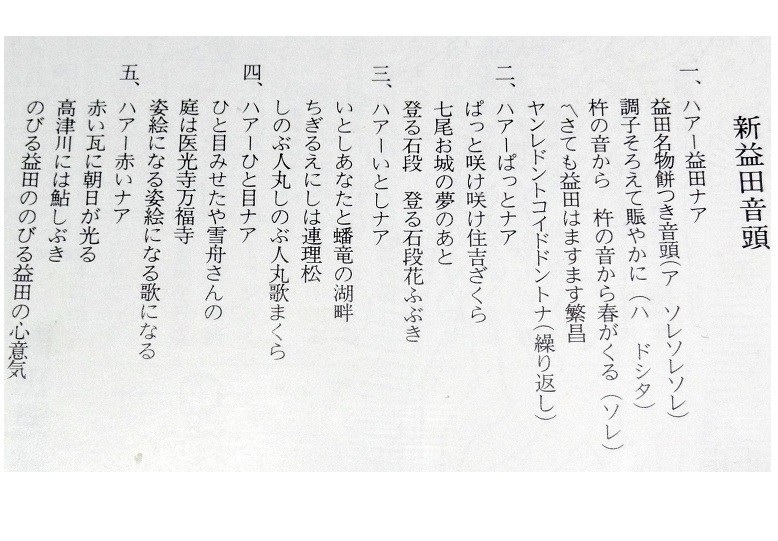 新益田音頭
一、ハアー益田ナア
益田名物餅つき音頭（ア　ソレソレソレ）
調子そろえて賑やかに（ハ　ドシタ）
杵の音から　杵の音から春がくる（ソレ）
〽さても益田はますます繁昌
ヤンレドントコイドドントナ（繰り返し）
二、ハアーぱっとナア
ぱっと咲け咲け住吉ざくら
七尾お城の夢のあと
登る石段　登る石段花ふぶき
三、ハアーいとしナア
いとしあなたと蟠竜の湖畔
ちぎるえにしは連理松
しのぶ人丸しのぶ人丸歌まくら
四、ハアーひと目ナア
ひと目みせたや雪舟さんの
庭は医光寺万福寺
姿絵になる姿絵になる歌になる
五、ハアー赤いナア
赤い瓦に朝日が光る
高津川には鮎しぶき
のびる益田ののびる益田の心意気